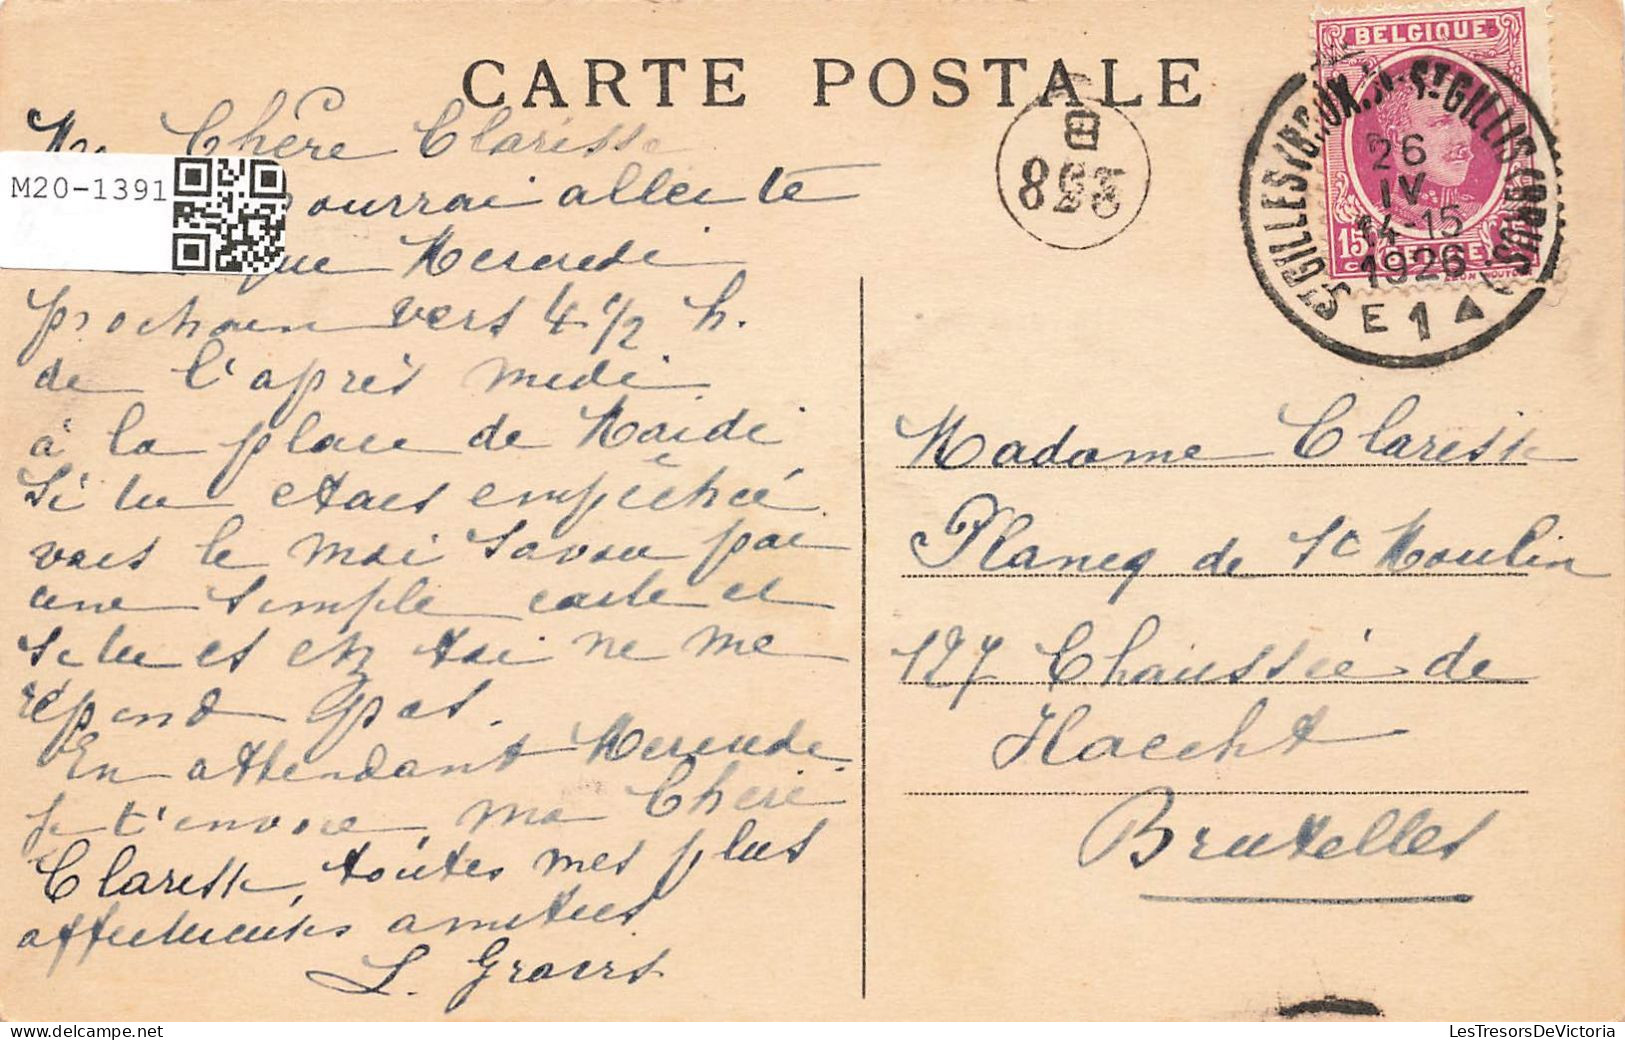 CARTE POSTALE
Ma Chère Clarisse
pourrai aller te
que Mercredi
prochain vers 4 1/2 h.
de l'après midi
à la place de Maidi
Si tu etais empêchée
vais le moi savoir par
une simple carte et
si tu es chz toi ne me
répond pas.
En attendant Mercredi
je t'envoie, ma Chère
Clarisse, toutes mes plus
affectueuses amitiés
L. Graers
M20-1391
BELGIQUE
15
ST GILLES (BRUX.)-ST GILLIS (BRUS.)
26
IV
14-15
1926
E 1
Madame Clarisse
Plancq de St Moulin
127 Chaussée de
Haecht
Bruxelles
LesTresorsDeVictoria